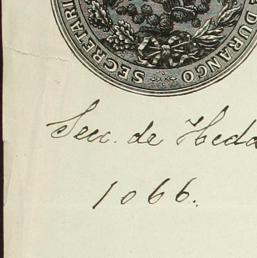 SECRETARI
DURANGO
Secc. de Hcda
1066.